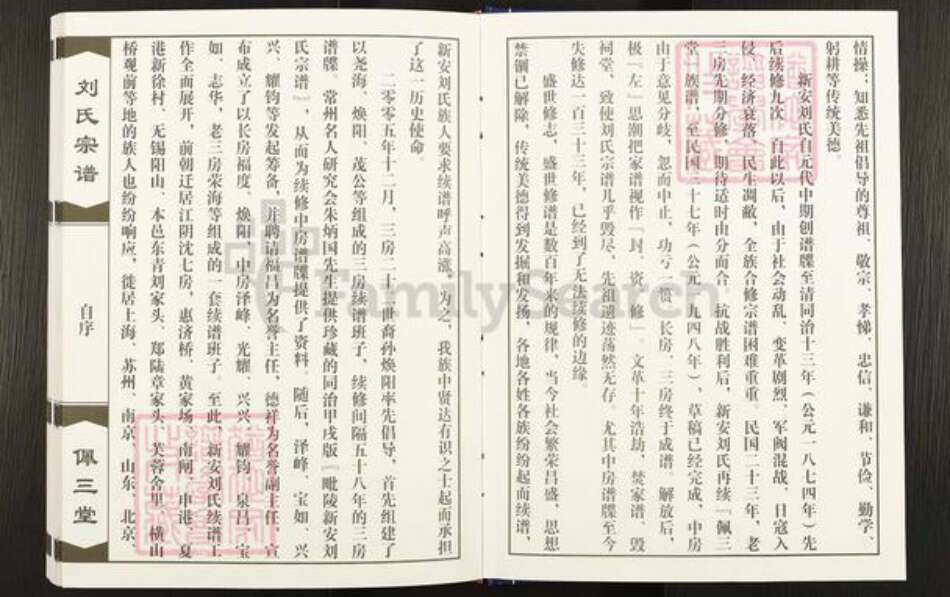 情操；知悉先祖倡导的尊祖、敬宗、孝悌、忠信、谦和、节俭、勤学、
躬耕等传统美德。
新安刘氏自元代中期创谱牒至清同治十三年（公元一八七四年）先
后续修九次。自此以后，由于社会动乱、变革剧烈、军阀混战、日寇入
侵、经济衰落、民生凋敝，全族合修宗谱困难重重。民国二十三年，老
三房先期分修，期待适时由分而合。抗战胜利后，新安刘氏再续「佩三
堂」族谱，至民国三十七年（公元一九四八年），草稿已经完成，中房
由于意见分歧，忽而中止，功亏一篑。长房、三房终于成谱。解放后，
极「左」思潮把家谱视作「封、资、修」。文革十年浩劫，焚家谱、毁
祠堂，致使刘氏宗谱几乎毁尽，先祖遗迹荡然无存。尤其中房谱牒至今
失修达一百三十三年，已经到了无法续修的边缘。
盛世修志，盛世修谱是数百年来的规律，当今社会繁荣昌盛，思想
禁锢已解除，传统美德得到发掘和发扬，各地各姓各族纷纷起而续谱，
新安刘氏族人要求续谱呼声高涨。为之，我族中贤达有识之士起而承担
了这一历史使命。
二零零五年十二月，三房二十一世裔孙焕阳率先倡导，首先组建了
以尧海、焕阳、茂公等组成的三房续谱班子，续修间隔五十八年的三房
谱牒。常州名人研究会朱炳国先生提供珍藏的同治甲戌版《毗陵新安刘
氏宗谱》，从而为续修中房谱牒提供了资料。随后，泽峰、宝如、兴
兴、耀钧等发起筹备，并聘请福昌为名誉主任，德祥为名誉副主任，宣
布成立了以长房福度、焕阳，中房泽峰、光耀、兴兴、耀钧、泉昌、宝
如、志华，老三房荣海等组成的一套续谱班子。至此，新安刘氏续谱工
作全面展开，前朝迁居江阴沈七房，惠济桥、黄家场、南闸、申港、夏
港新徐村，无锡阳山、本邑东青刘家头、郑陆章家头、芙蓉舍里、横山
桥观前等地的族人也纷纷响应，徙居上海、苏州、南京、山东、北京、
刘氏宗谱
自序
佩三堂
FamilySearch